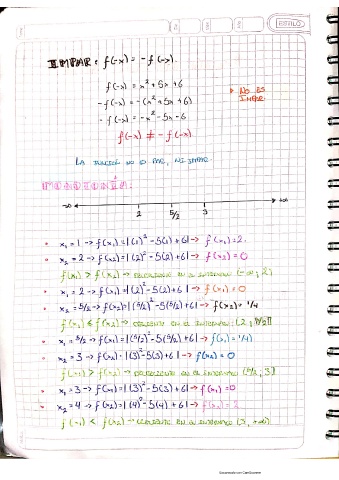 ESTILO
IMPAR: f(-x) = -f(-x).
f(-x) = x² + 5x + 6
-f(-x) = -(x² + 5x + 6)
-f(-x) = -x² - 5x - 6
NO ES
IMPAR.
f(-x) ≠ -f(-x)
LA FUNCIÓN NO ES PAR, NI IMPAR
-∞ +∞
2 5/2 3
x₁ = 1 → f(x₁) = |(1)² - 5(1) + 6| → f(x₁) = 2.
x₂ = 2 → f(x₂) = |(2)² - 5(2) + 6| → f(x₂) = 0
f(x₁) > f(x₂) → DECRECIENTE EN EL INTERVALO (-∞, 2)
x₁ = 2 → f(x₁) = |(2)² - 5(2) + 6| → f(x₁) = 0
x₂ = 5/2 → f(x₂) = |(5/2)² - 5(5/2) + 6| → f(x₂) = 1/4
f(x₁) < f(x₂) → CRECIENTE EN EL INTERVALO (2, 5/2]
x₁ = 5/2 → f(x₁) = |(5/2)² - 5(5/2) + 6| → f(x₁) = 1/4
x₂ = 3 → f(x₂) = |(3)² - 5(3) + 6| → f(x₂) = 0
f(x₁) > f(x₂) → DECRECIENTE EN EL INTERVALO (5/2, 3]
x₁ = 3 → f(x₁) = |(3)² - 5(3) + 6| → f(x₁) = 0
x₂ = 4 → f(x₂) = |(4)² - 5(4) + 6| → f(x₂) = 2
f(x₁) < f(x₂) → CRECIENTE EN EL INTERVALO (3, +∞)
Escaneado con CamScanner